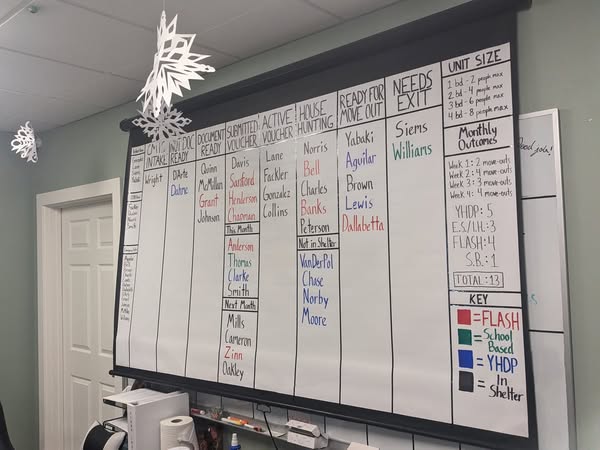 INTAKE
Wright
NOT DOC
READY
D'Arte
DOCUMENT
READY
Quinn
McMillan
Grant
Johnson
SUBMITTED
VOUCHER
Davis
Sanford
Henderson
Chapman
This Month
Anderson
Thomas
Clarke
Smith
Next Month
Mills
Cameron
Zinn
Oakley
ACTIVE
VOUCHER
Lane
Fackler
Gonzalez
Collins
HOUSE
HUNTING
Norris
Bell
Charles
Banks
Peterson
Not in Shelter
VanDerPol
Chase
Norby
Moore
READY FOR
MOVE OUT
Yabaki
Aguilar
Brown
Lewis
Dallabetta
NEEDS
EXIT
Siems
Williams
UNIT SIZE
1 bd - 2 people max
2 bd - 4 people max
3 bd - 6 people max
4 bd - 8 people max
Monthly
Outcomes
Week 1: 2 move-outs
Week 2: 4 move-outs
Week 3: 3 move-outs
Week 4: 4 move-outs
YHDP: 5
E.S./L.H.: 3
FLASH: 4
S.B.: 1
TOTAL: 13
KEY
= FLASH
= School
Based
= YHDP
= In
Shelter
Good job!